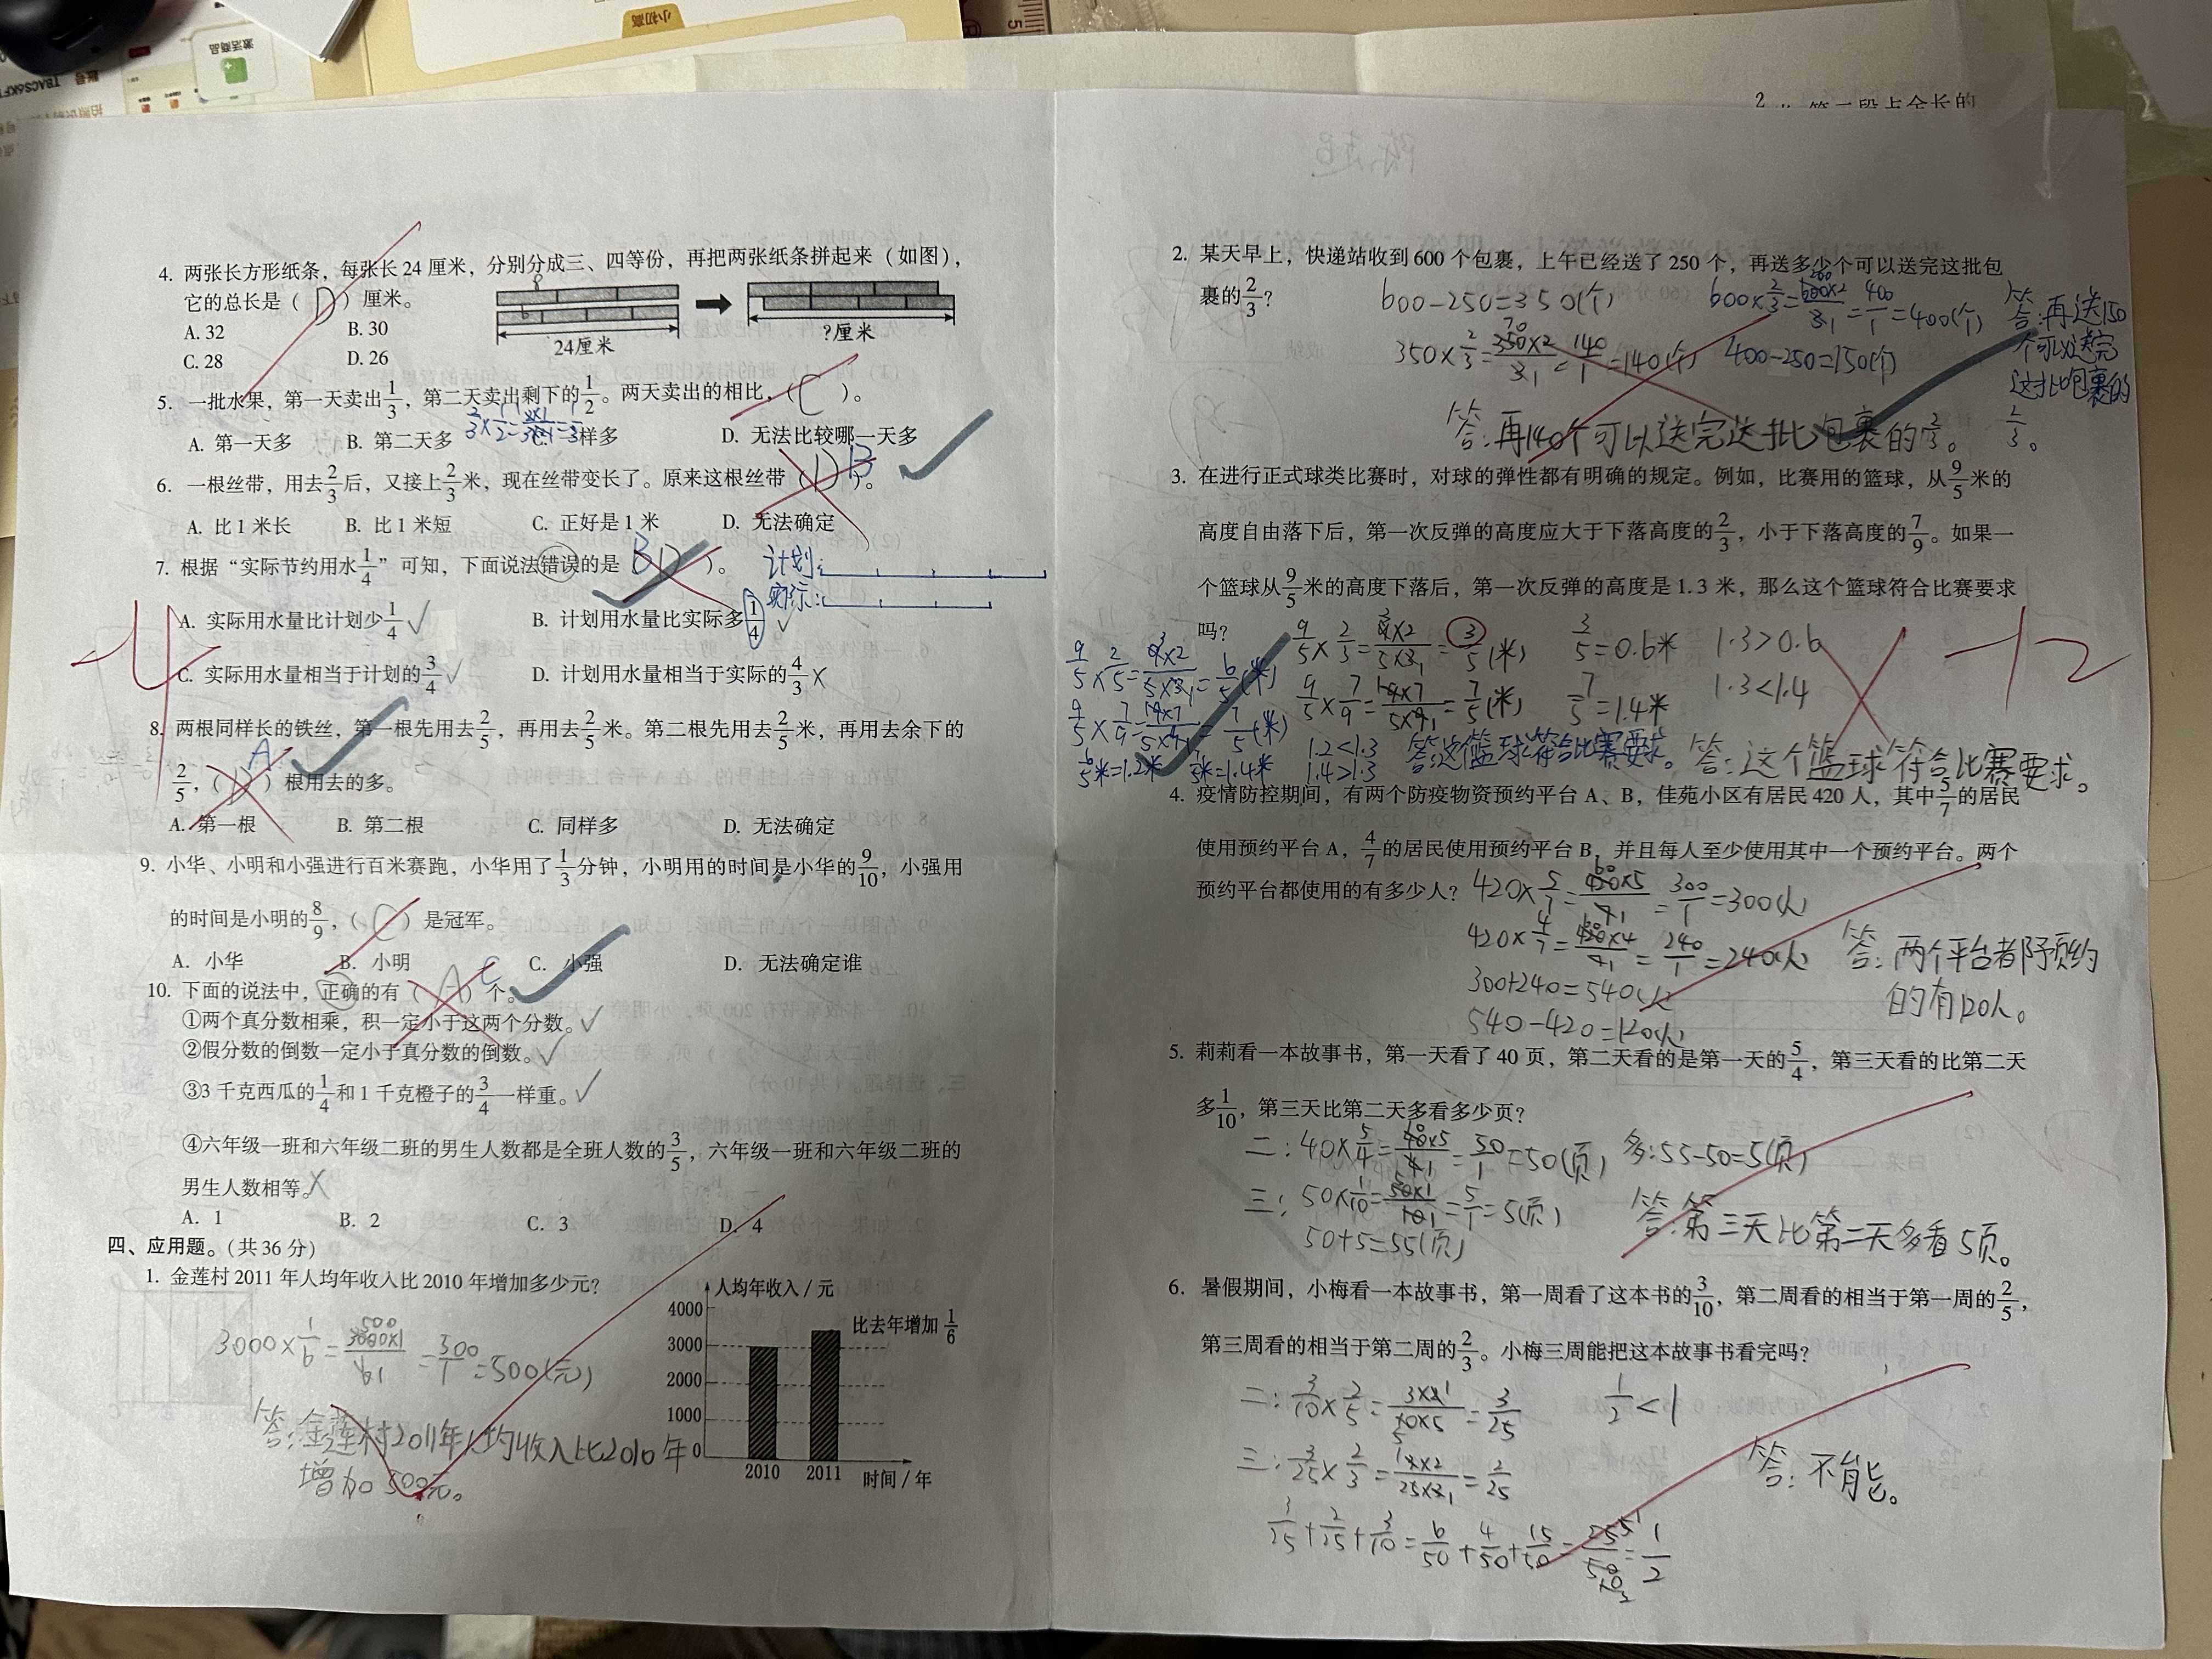 小初高
激活商品
2
第二段占全长的
4. 两张长方形纸条，每张长 24 厘米，分别分成三、四等份，再把两张纸条拼起来（如图），
它的总长是（ D ）厘米。
8
6
A. 32 B. 30
C. 28 D. 26
24厘米
?厘米
5. 一批水果，第一天卖出1/3，第二天卖出剩下的1/2。两天卖出的相比，（ C ）。
A. 第一天多 B. 第二天多 C. 同样多 D. 无法比较哪一天多
6. 一根丝带，用去2/3后，又接上2/3米，现在丝带变长了。原来这根丝带（ D B ）。
A. 比 1 米长 B. 比 1 米短 C. 正好是 1 米 D. 无法确定
7. 根据“实际节约用水1/4”可知，下面说法错误的是（ B D ）。
计划：
实际：
A. 实际用水量比计划少1/4 ✓ B. 计划用水量比实际多1/4 ✓
C. 实际用水量相当于计划的3/4 ✓ D. 计划用水量相当于实际的4/3 ×
-4
8. 两根同样长的铁丝，第一根先用去2/5，再用去2/5米。第二根先用去2/5米，再用去余下的
2/5，（ D A ）根用去的多。
A. 第一根 B. 第二根 C. 同样多 D. 无法确定
9. 小华、小明和小强进行百米赛跑，小华用了1/3分钟，小明用的时间是小华的9/10，小强用
的时间是小明的8/9，（ C ）是冠军。
A. 小华 B. 小明 C. 小强 D. 无法确定谁
10. 下面的说法中，正确的有（ A C ）个。
①两个真分数相乘，积一定小于这两个分数。✓
②假分数的倒数一定小于真分数的倒数。✓
③3 千克西瓜的1/4和 1 千克橙子的3/4一样重。✓
④六年级一班和六年级二班的男生人数都是全班人数的3/5，六年级一班和六年级二班的
男生人数相等。×
A. 1 B. 2 C. 3 D. 4
四、应用题。（共 36 分）
1. 金莲村 2011 年人均年收入比 2010 年增加多少元？
3000×1/6=3000×1/6=500/1=500(元)
答:金莲村2011年人均收入比2010年
增加500元。
人均年收入 / 元
4000
3000
2000
1000
0
比去年增加1/6
2010 2011
时间 / 年
2. 某天早上，快递站收到 600 个包裹，上午已经送了 250 个，再送多少个可以送完这批包
裹的2/3？
600-250=350(个)
350×2/3=350×2/3=140/1=140(个)
答:再140个可以送完这批包裹的2/3。
600×2/3=600×2/3=400/1=400(个)
400-250=150(个)
答:再送150
个可以送完
这批包裹的
2/3。
3. 在进行正式球类比赛时，对球的弹性都有明确的规定。例如，比赛用的篮球，从9/5米的
高度自由落下后，第一次反弹的高度应大于下落高度的2/3，小于下落高度的7/9。如果一
个篮球从9/5米的高度下落后，第一次反弹的高度是 1.3 米，那么这个篮球符合比赛要求
吗？
9/5×2/3=9×2/5×3=3/5(米) 3/5=0.6米 1.3>0.6
9/5×7/9=9×7/5×9=7/5(米) 7/5=1.4米 1.3<1.4
答:这个篮球符合比赛要求。
-2
9/5×2/5=9×2/5×3=6/5(米)
9/5×7/9=9×7/5×9=7/5(米)
6/5米=1.2米 7/5米=1.4米
1.2<1.3
1.4>1.3
答:这个篮球符合比赛要求。
4. 疫情防控期间，有两个防疫物资预约平台 A、B，佳苑小区有居民 420 人，其中5/7的居民
使用预约平台 A，4/7的居民使用预约平台 B，并且每人至少使用其中一个预约平台。两个
预约平台都使用的有多少人？
420×5/7=420×5/7=300/1=300(人)
420×4/7=420×4/7=240/1=240(人)
300+240=540(人)
540-420=120(人)
答:两个平台都预约
的有120人。
5. 莉莉看一本故事书，第一天看了 40 页，第二天看的是第一天的5/4，第三天看的比第二天
多1/10，第三天比第二天多看多少页？
二:40×5/4=40×5/4=50/1=50(页) 多:55-50=5(页)
三:50×1/10=50×1/10=5/1=5(页)
50+5=55(页)
答:第三天比第二天多看5页。
6. 暑假期间，小梅看一本故事书，第一周看了这本书的3/10，第二周看的相当于第一周的2/5，
第三周看的相当于第二周的2/3。小梅三周能把这本故事书看完吗？
二:3/10×2/5=3×2/10×5=3/25 1/2<1
三:3/25×2/3=3×2/25×3=2/25
3/25+2/25+3/10=6/50+4/50+15/50=25/50=1/2
答:不能。